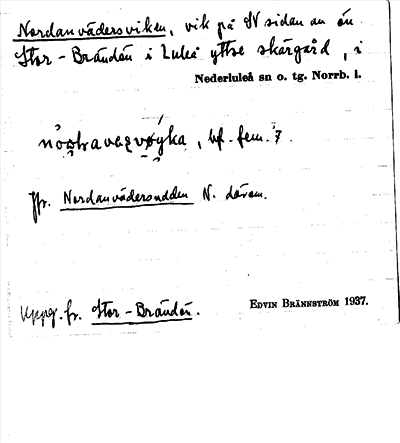 Nordanvädersviken, vik på N sidan av ön
Stor-Brändön i Luleå yttre skärgård, i
Nederluleå sn o. tg. Norrb. l.
bf. fem. 7.
Jfr. Nordanvädersudden N. därom.
Uppg. fr. Stor-Brändön.
EDVIN BRÄNNSTRÖM 1937.